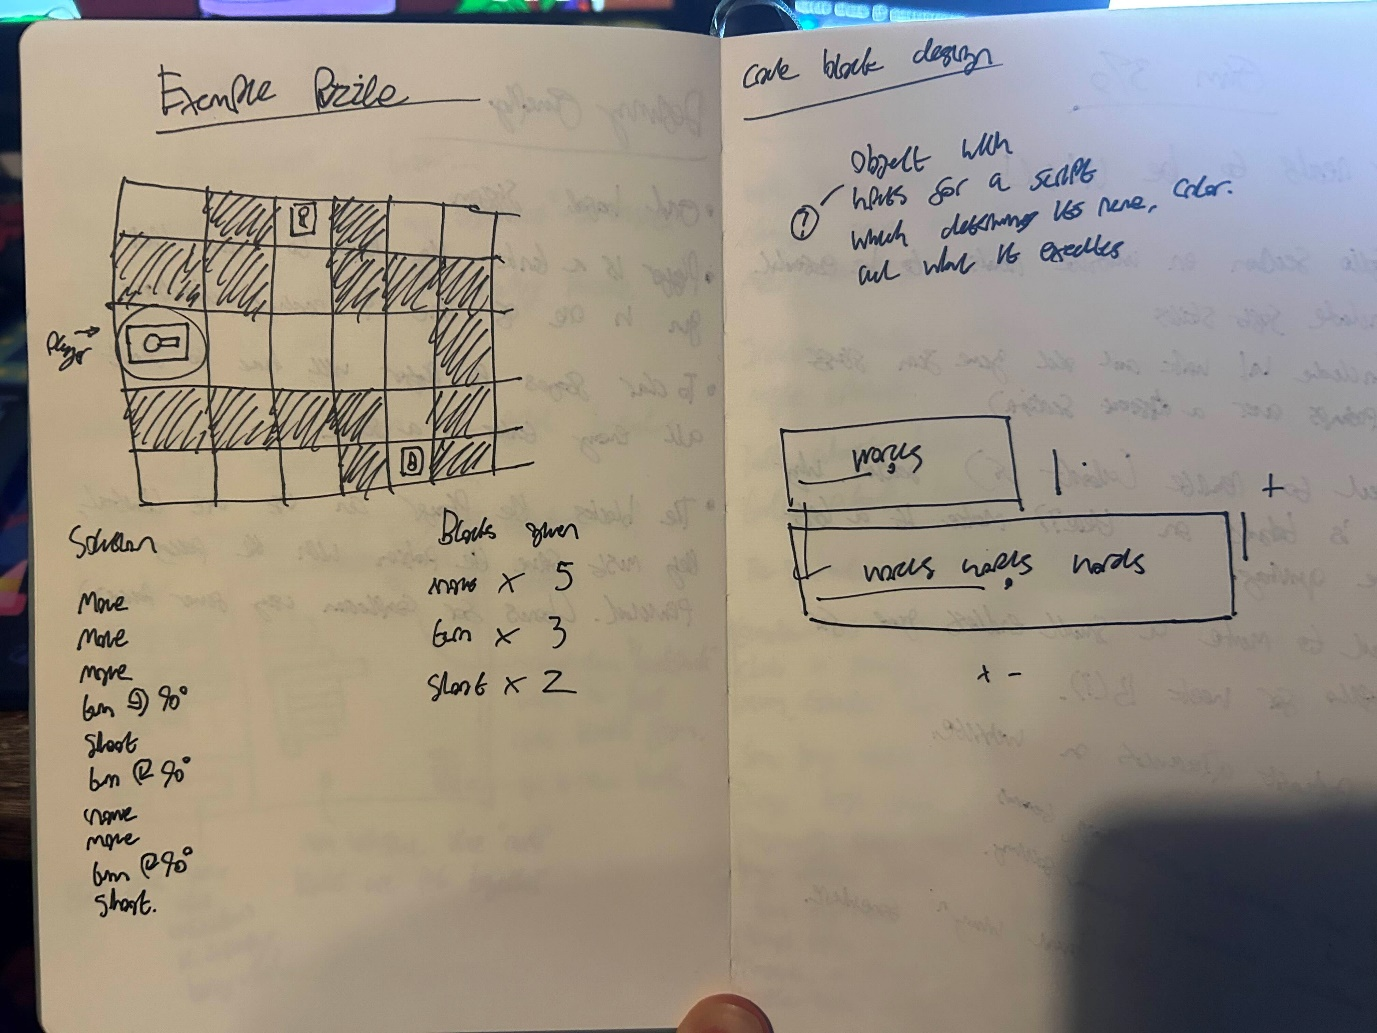 Example Puzzle
Player
Solution
Move
Move
move
turn 90°
shoot
turn 90°
move
move
turn 90°
shoot.
Blocks given
move x 5
turn x 3
shoot x 2
Code block design
Object with
inputs for a script
which determines its name, color.
and what it executes
words
words words words
+
+ -